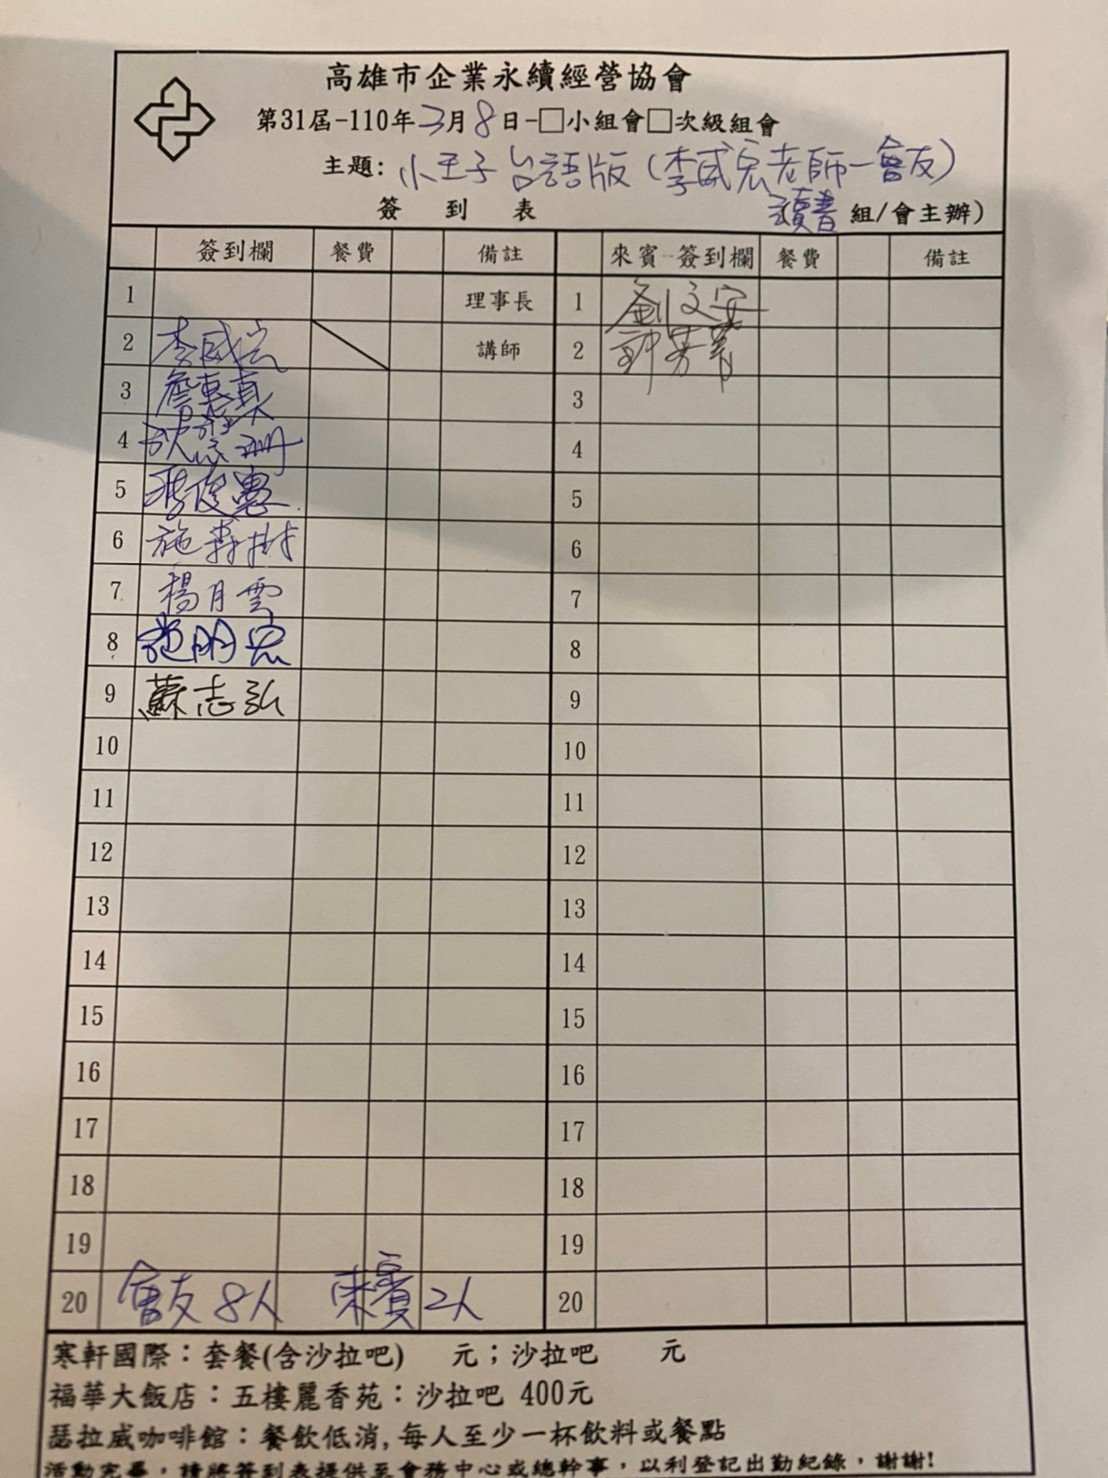 高雄市企業永續經營協會
第31屆-110年3月8日-□小組會□次級組會
主題: 小王子台語版(李威宏老師一會友)
簽 到 表 讀書 組/會主辦)
簽到欄 餐費 備註 來賓-簽到欄 餐費 備註
1 理事長 1 劉文安
2 李威宏 講師 2
3 詹惠真 3
4 4
5 5
6 施 6
7 楊月雲 7
8 施明宏 8
9 蘇志弘 9
10 10
11 11
12 12
13 13
14 14
15 15
16 16
17 17
18 18
19 19
20 會友8人 來賓2人 20
寒軒國際：套餐(含沙拉吧) 元；沙拉吧 元
福華大飯店：五樓麗香苑：沙拉吧 400元
瑟拉威咖啡館：餐飲低消,每人至少一杯飲料或餐點
活動完畢，請將簽到表提供至會務中心或總幹事，以利登記出勤紀錄，謝謝!